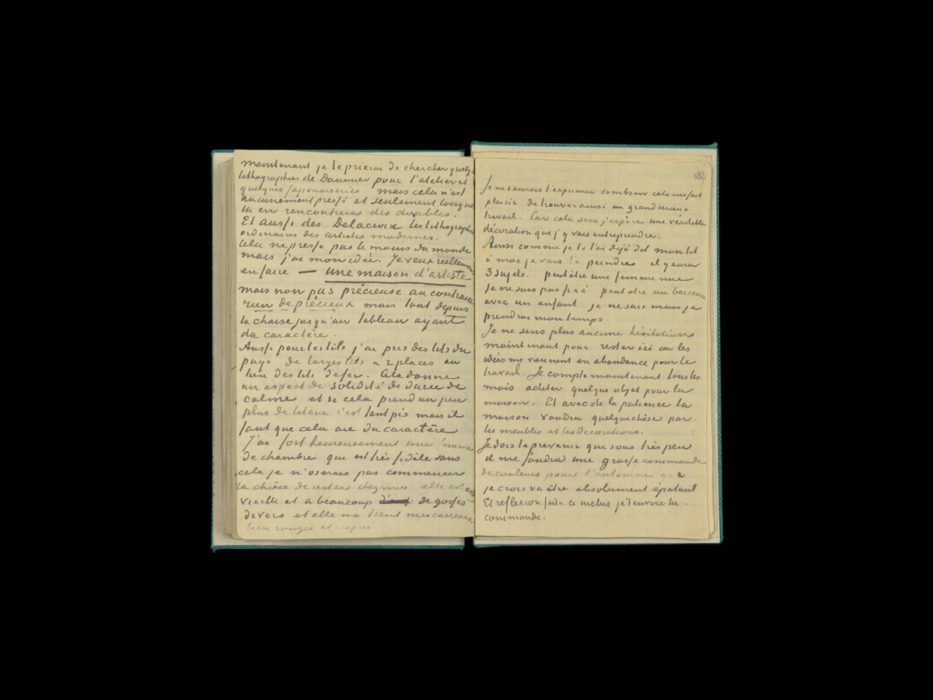 Maintenant je te prierai de chercher quelq
lithographies de Daumier pour l'atelier et
quelques japonaiseries mais cela n'est
aucunement pressé et seulement lorsque
tu en rencontreras des doubles.
Et aussi des Delacroix les lithographies
ordinaires des artistes modernes.
Cela ne presse pas le moins du monde
mais j'ai mon idée. Je veux réellement
en faire — une maison d'artiste
mais non pas précieuse au contraire
rien de précieux mais tout depuis
la chaise jusqu'au tableau ayant
du caractère.
Aussi pour les lits j'ai pris des lits du
pays de larges lits a 2 places au
lieu des lits de fer. Cela donne
un aspect de solidité de durée de
calme et si cela prend un peu
plus de literie c'est tant pis mais il
faut que cela aie du caractère
J'ai fort heureusement une femme
de chambre qui est très fidèle sans
cela je n'oserais pas commencer
la chose de rester chez moi elle est
vieille et a beaucoup de gosses
divers et elle me tient mes carreaux
bien rouges et propres.
Je ne saurais t'exprimer combien cela me fait
plaisir de trouver ainsi un grand sérieux
travail. Car cela sera j'espère une véritable
décoration que j'y vais entreprendre.
Ainsi comme je te l'ai déjà dit mon lit
à moi je vais le peindre il y aura
3 sujets. peut être une femme nue
je ne suis pas fixé peut etre un berceau
avec un enfant je ne sais mais je
prendrai mon temps
Je ne sens plus aucune hésitation
maintenant pour rester ici car les
idées me viennent en abondance pour le
travail. Je compte maintenant tous les
mois acheter quelque objet pour la
maison. Et avec de la patience la
maison vaudra quelque chose par
les meubles et les décorations.
Je dois te prevenir que sous très peu
il me faudra une grosse commande
de couleurs pour l'automne que
je crois va être absolument épatant
Et reflexion faite ci inclus je t'envoie la
commande.